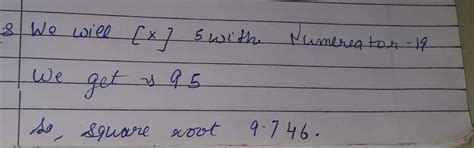 8 We will [x] 5 with Numereator - 19
We get is 95
So, square root 9.746.